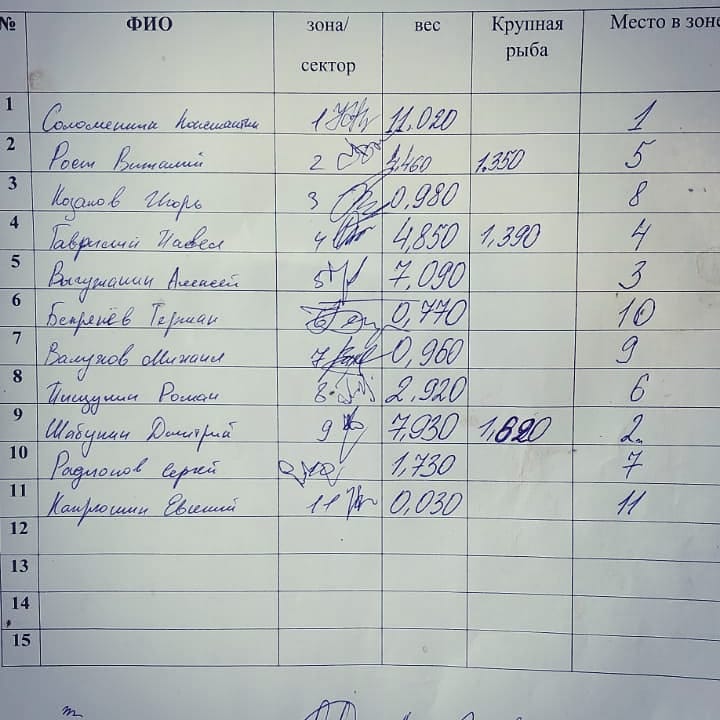 № ФИО зона/ сектор вес Крупная рыба Место в зоне
1 Соломенник Константин 1 11,020 1
2 Рост Виталий 2 4,460 1.350 5
3 Козаков Игорь 3 0,980 8
4 Гаврилий Павел 4 4,850 1,390 4
5 Выгузанин Алексей 5 7,090 3
6 Герман 6 0,770 10
7 Михаил 7 0,960 9
8 Пищулин Роман 8. 2,920 6
9 Шабунин Дмитрий 9 7,930 1,620 2
10 Радионов Сергей 1,730 7
11 Евгений 11 0,030 11
12
13
14
15